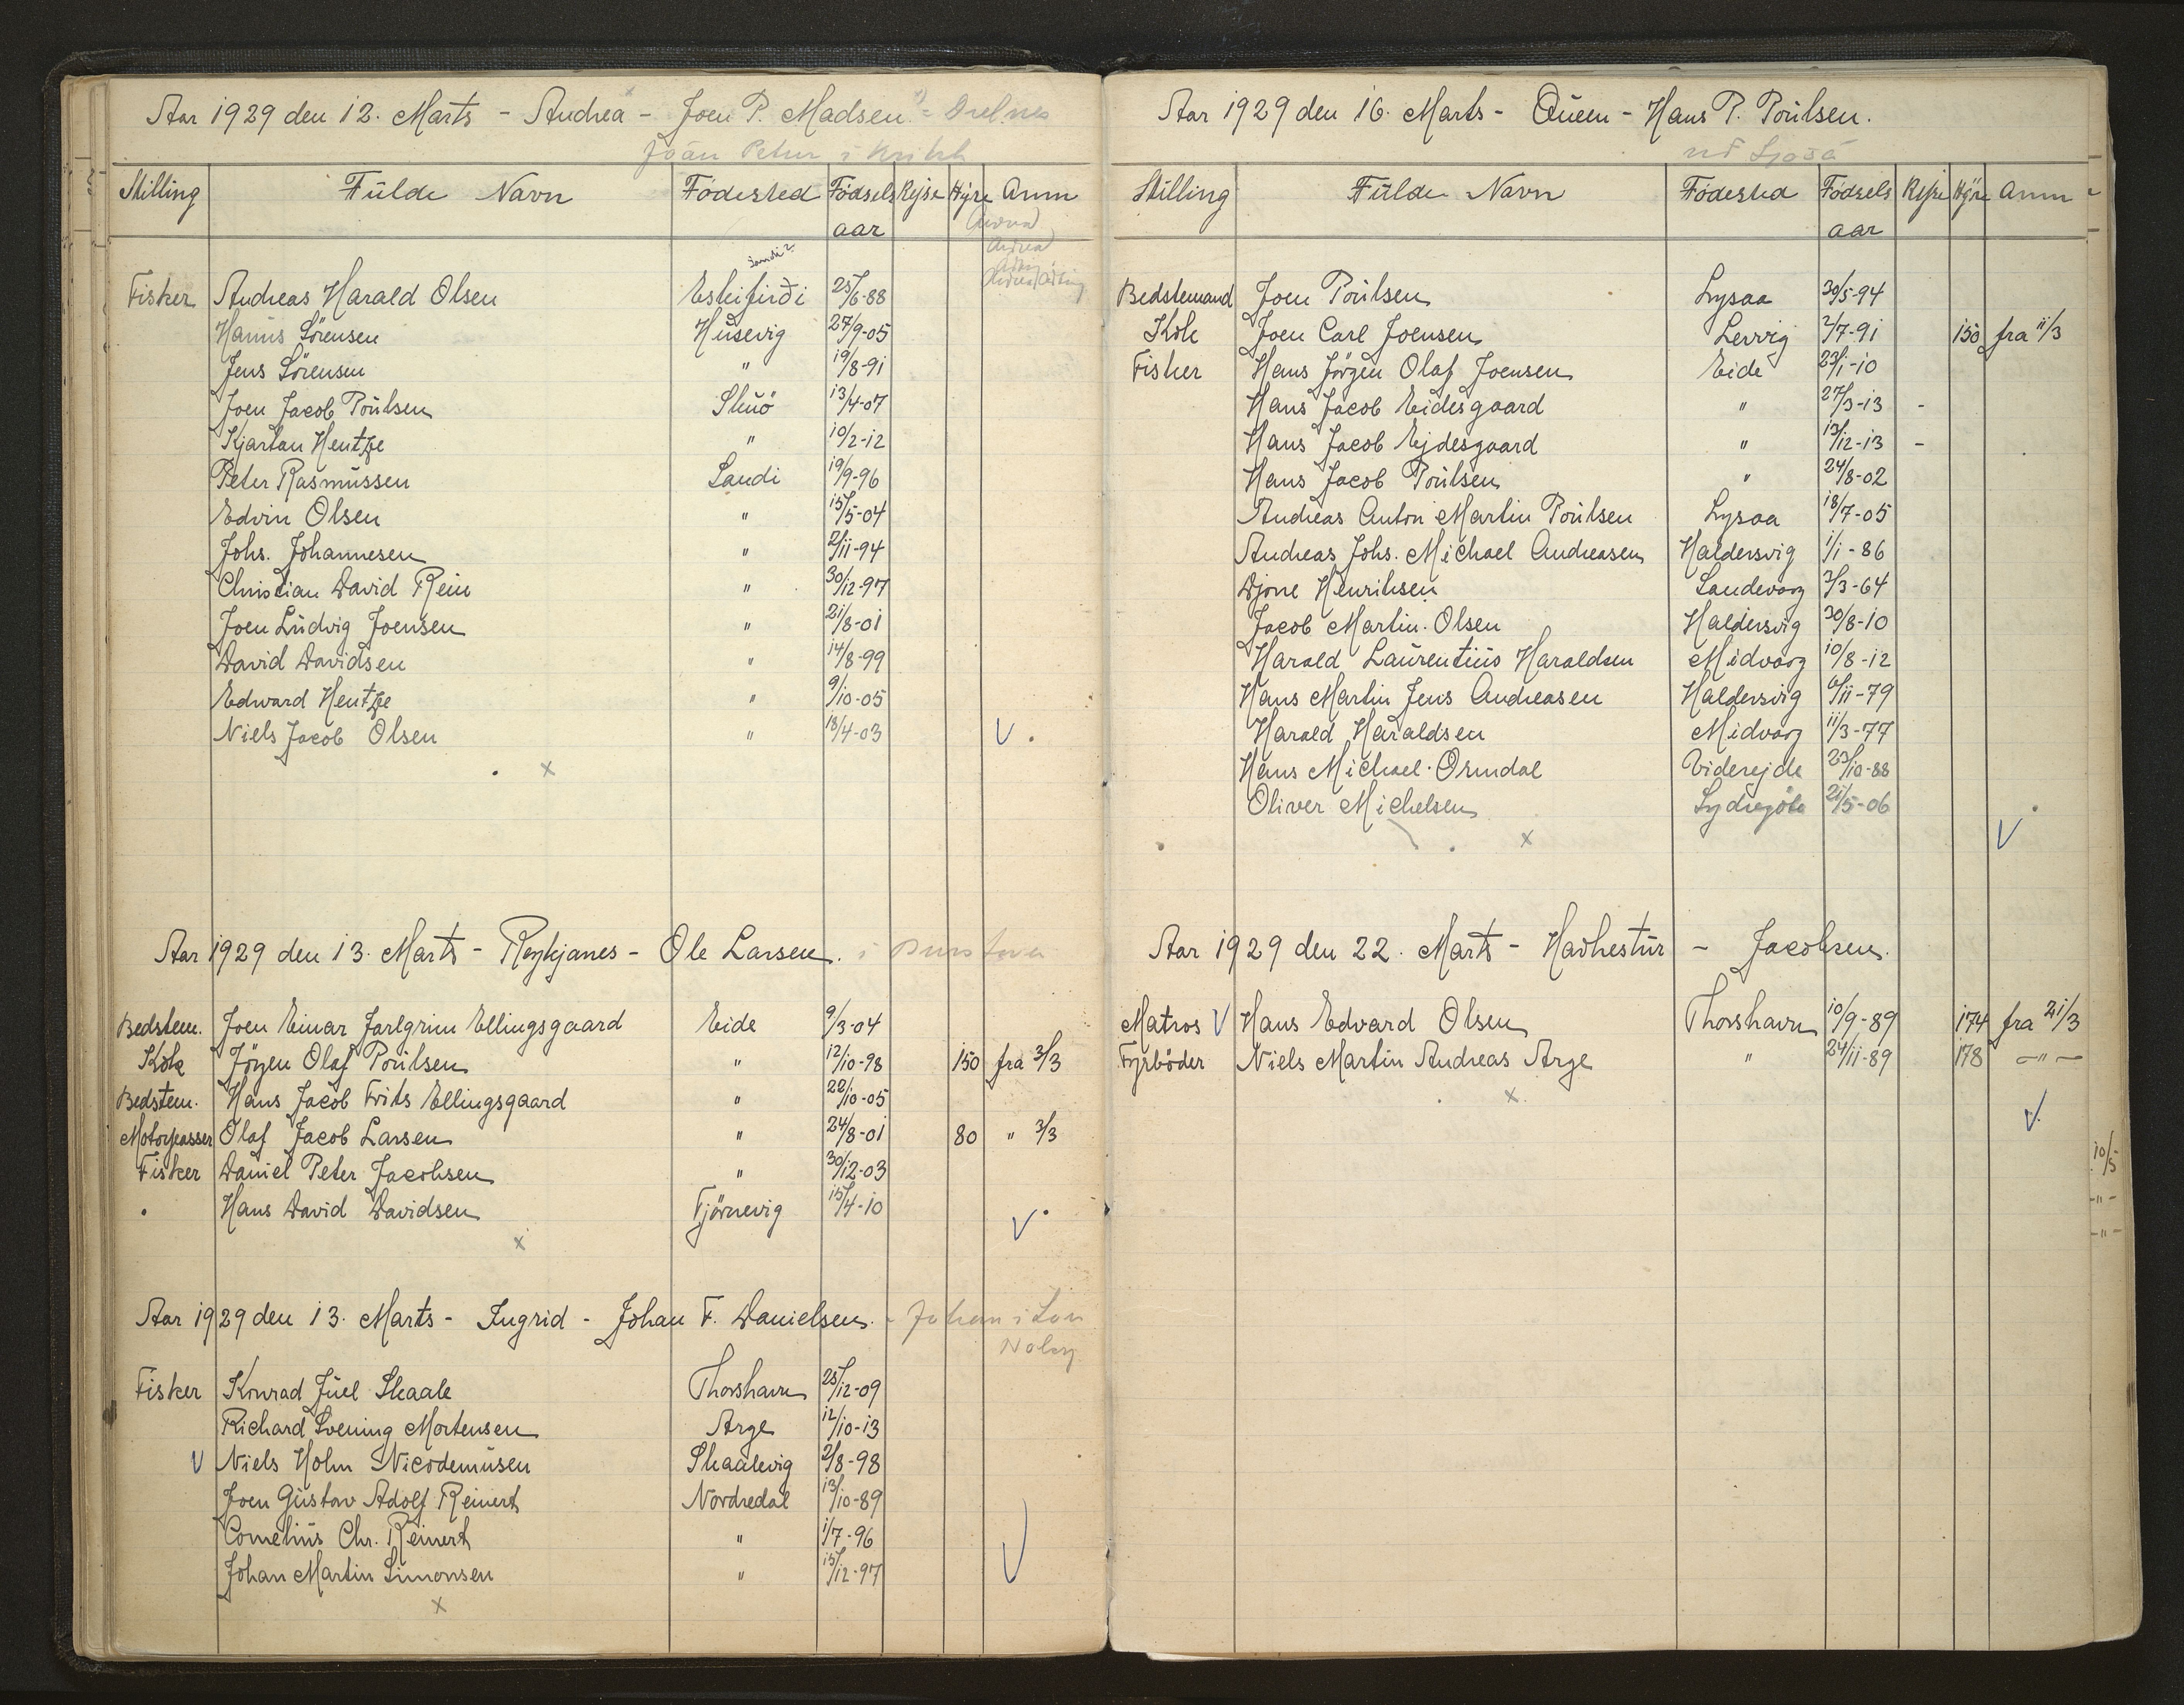 Aar 1929 den 12. Marts - Andrea - Joen P. Madsen
Joan Petur i
Stilling Fulde Navn Födested Födsels aar Rejse Hyre Anm
Sandi?
Fisker Andreas Harald Olsen Eskifirði 25/6-88
Hanus Sörensen Husevig 27/9-05
Jens Sörensen " 19/8-91
Joen Jacob Poulsen Skuö 13/4-07
Kjartan Hentze " 10/2-12
Peter Rasmussen Sandi 19/9-96
Edvin Olsen " 15/5-04
Johs. Johannesen " 2/11-94
Christian David Rein " 30/12-97
Joen Ludvig Joensen " 21/8-01
David Davidsen " 14/8-99
Edward Hentze " 9/10-05
Niels Jacob Olsen " 18/4-03 V
x
Aar 1929 den 13. Marts - Reykjanes - Ole Larsen. i
Bedstem. Joen Einar Jarlgrim Ellingsgaard Eide 9/3-04
Kok Jörgen Olaf Poulsen " 12/10-98 150 fra 3/3
Bedstem. Hans Jacob Frits Ellingsgaard " 22/10-05
Motorpasser Olaf Jacob Larsen " 24/8-01 80 " 3/3
Fisker Daniel Peter Jacobsen " 30/12-03
Hans David Davidsen Tjörnevig 15/4-10 V
x
Aar 1929 den 13. Marts - Ingrid - Johan F. Danielsen. -
Fisker Konrad Juel Skaale Thorshavn 25/12-09
Richard Svening Mortensen Arge 12/10-13
V Niels Holm Nicodemusen Skaalevig 2/8-98
Joen Gustav Adolf Reinert Nordredal 13/10-89
Cornelius Chr. Reinert " 1/7-96
Johan Martin Simonsen " 15/12-97 V
x
Aar 1929 den 16. Marts - Queen - Hans P. Poulsen.
Stilling Fulde Navn Födested Födsels aar Rejse Hyre Anm
Bedstemand Joen Poulsen Lysaa 30/5-94
Kok Joen Carl Joensen Lervig 2/7-91 150 fra 11/3
Fisker Hans Jörgen Olaf Joensen Eide 23/1-10
Hans Jacob Eidesgaard " 27/3-13 -
Hans Jacob Ejdesgaard " 13/12-13 -
Hans Jacob Poulsen " 24/8-02
Andreas Anton Martin Poulsen Lysaa 18/7-05
Andreas Johs. Michael Andreasen Haldersvig 1/1-86
Djone Henriksen Sandevaag 3/3-64
Jacob Martin Olsen Haldersvig 30/8-10
Harald Laurentius Haraldsen Midvaag 10/8-12
Hans Martin Jens Andreasen Haldersvig 6/11-79
Harald Haraldsen Midvaag 11/3-77
Hans Michael Ormdal Viderejde 23/10-88
Oliver Michelsen Sydregöte 21/5-06
V
x
Aar 1929 den 22. Marts - Havhestur - Jacobsen.
Matros V Hans Edvard Olsen Thorshavn 10/9-89 174 fra 21/3
Fyrböder Niels Martin Andreas Arge " 24/11-89 178 -"-
x
V
10/5
-"-
-"-